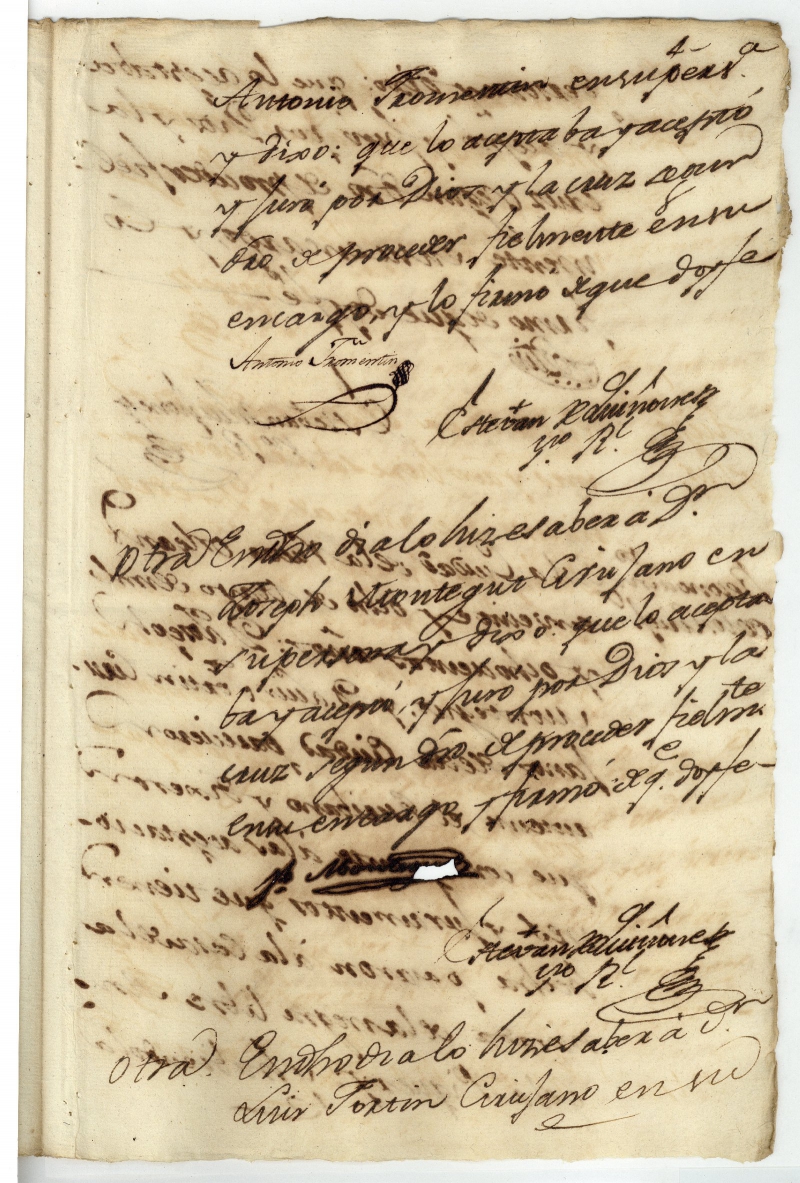 Antonio Fromentin en su pers.a
y dixo: que lo aceptaba y aceptó
y Juró por Dios y la cruz segun
dro. de proceder fielmente en su
encargo, y lo firmó de que doy fe
Antonio Fromentin
Estevan de Quiñones
ño R.l
Otra En dho dia lo hize saber á Dn.
Joseph Montegut Cirujano en
su persona y dixo: que lo acepta
ba y aceptó, y Juro por Dios y la
cruz segun dro. de proceder fielmte.
en su encargo y firmó: de q.e doy fe
Jh. Montegut
Estevan de Quiñones
ño R.l
Otra. En dho dia lo hize saber á Dn.
Luis Fortin Cirujano en su